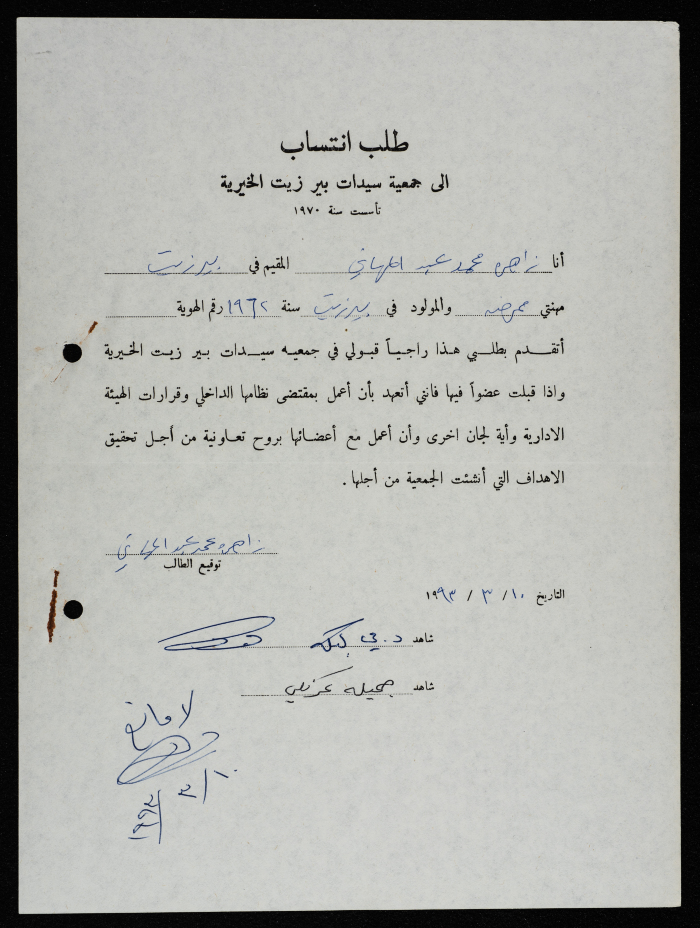 طلب انتساب
الى جمعية سيدات بير زيت الخيرية
تأسست سنة ١٩٧٠
أنا زاهره محمد عبد المقيم في بيرزيت
مهنتي ممرضه والمولود في بيرزيت سنة ١٩٦٢ رقم الهوية
أتقدم بطلبي هذا راجياً قبولي في جمعيه سيدات بير زيت الخيرية
واذا قبلت عضواً فيها فانني أتعهد بأن أعمل بمقتضى نظامها الداخلي وقرارات الهيئة
الادارية وأية لجان اخرى وأن أعمل مع أعضائها بروح تعاونية من أجل تحقيق
الاهداف التي أنشئت الجمعية من أجلها .
زاهره محمد عبد
توقيع الطالب
التاريخ ١٠ / ٣ / ١٩٩٣
شاهد
شاهد جميله
لا مانع
١٠/٣/١٩٩٣